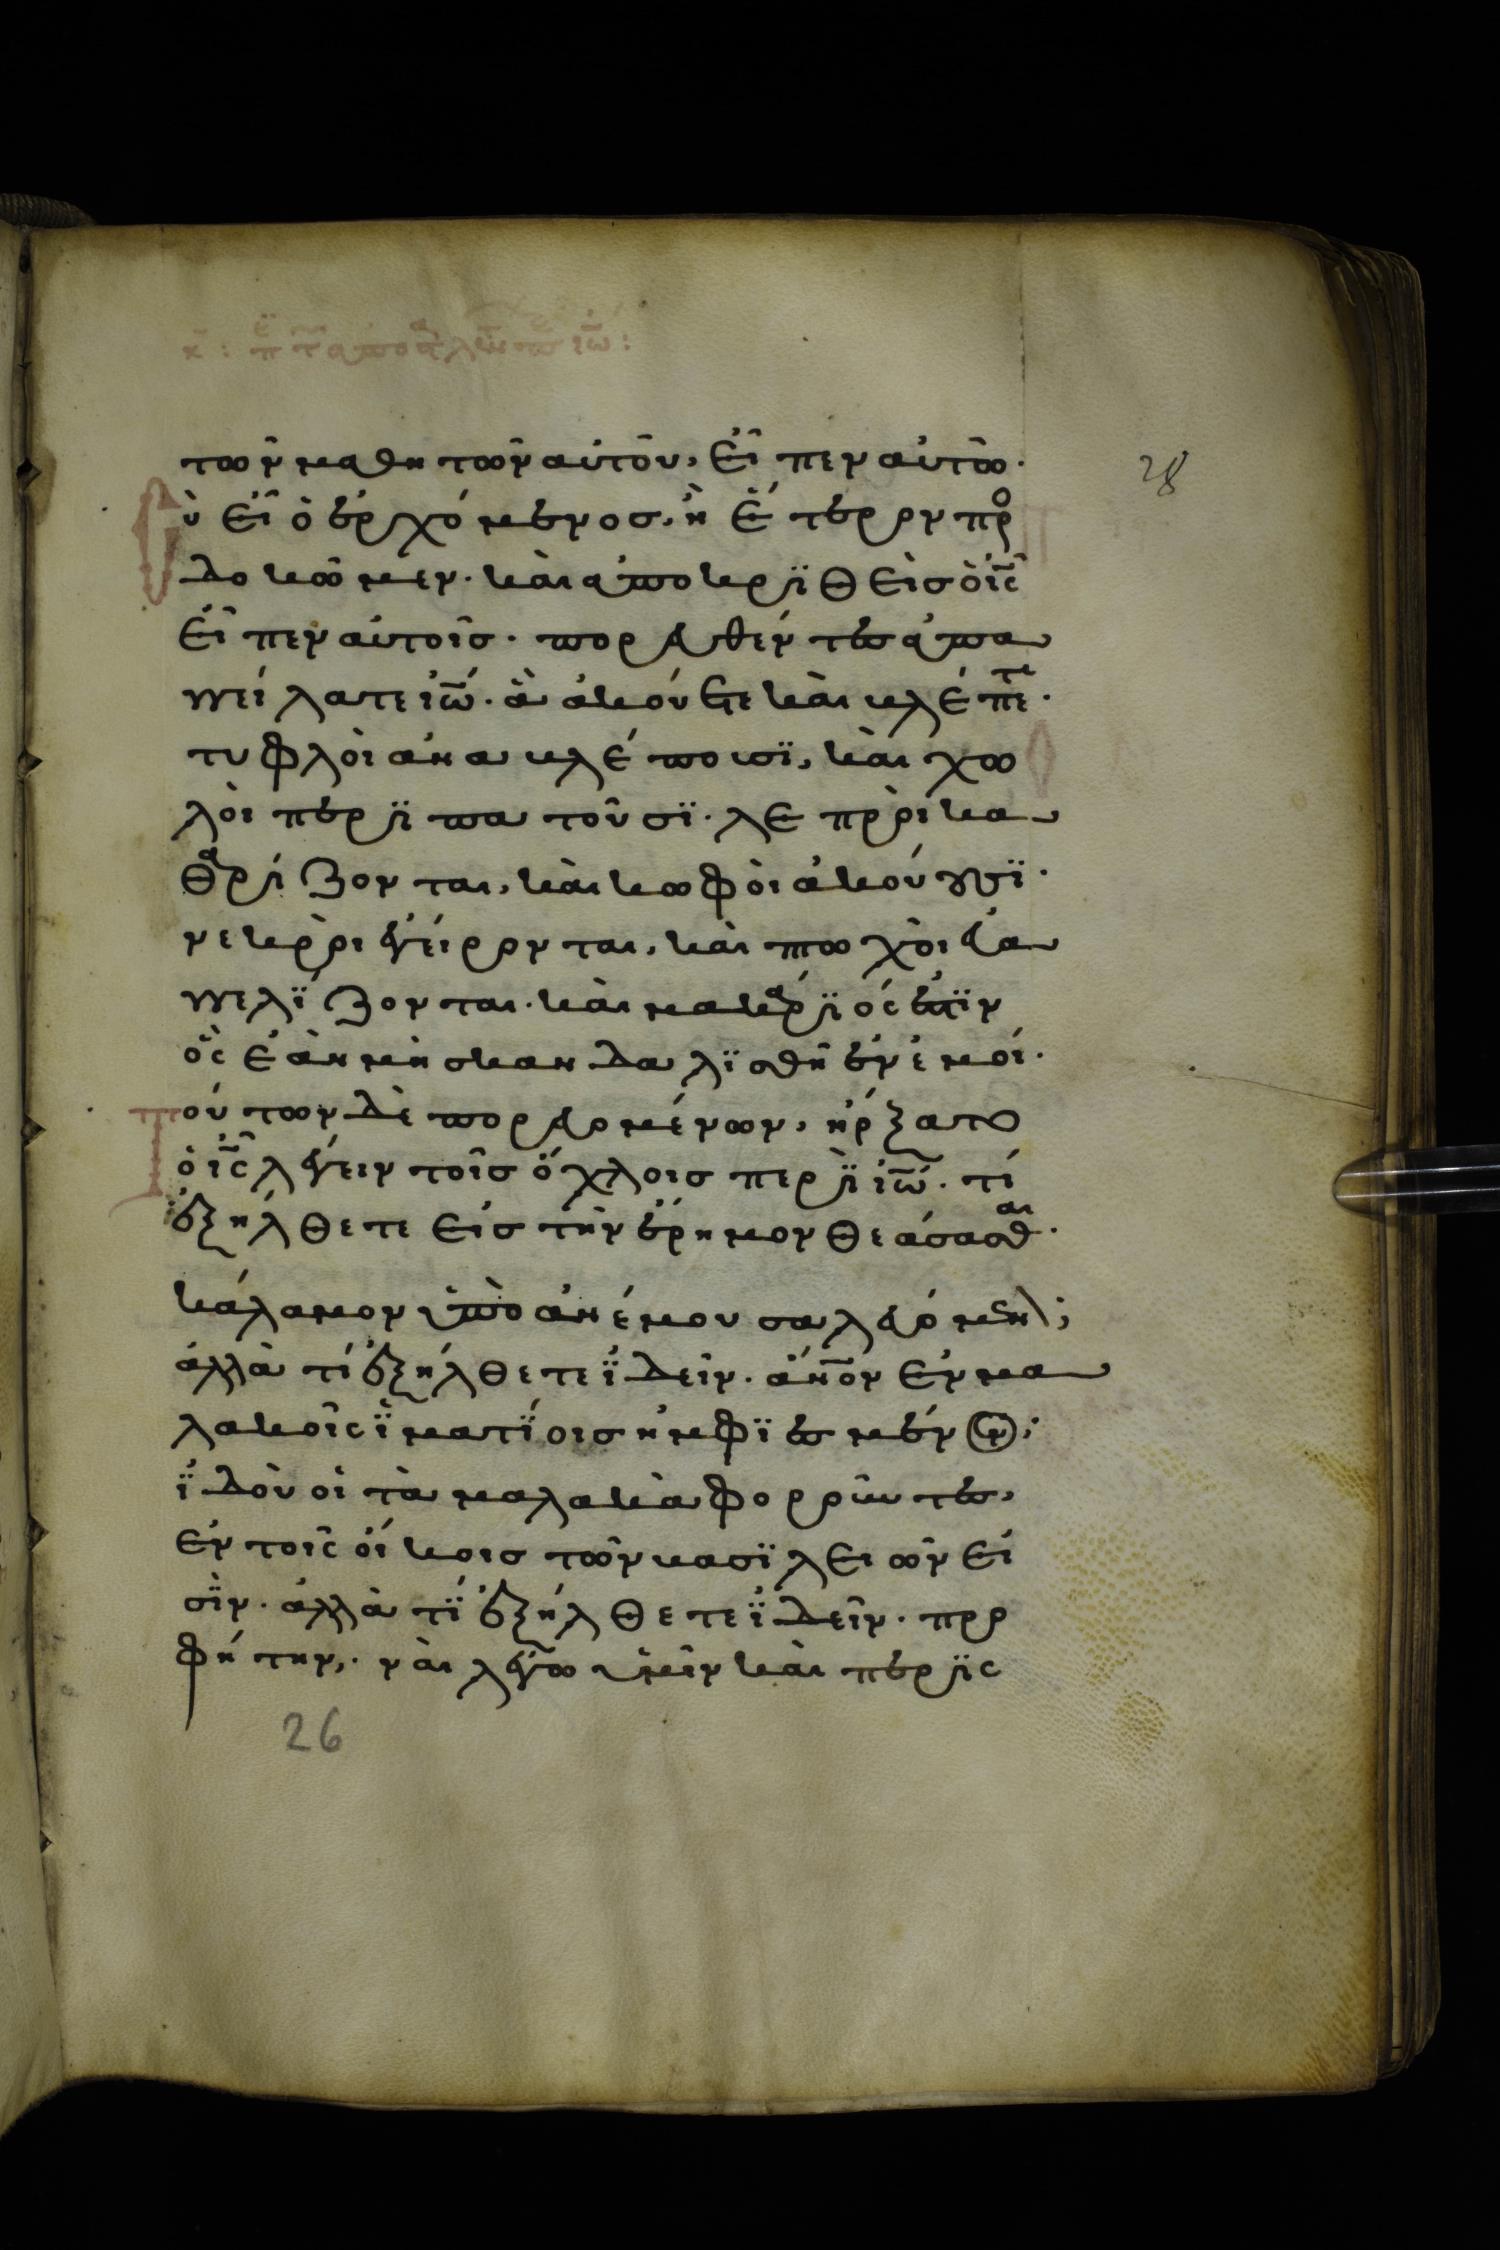 28
τῶν μαθητῶν αὐτοῦ, εἶπεν αὐτῶ.
Σὺ εἶ ὁ ἐρχόμενος, ἢ ἕτερον προ
δοκῶμεν. καὶ ἀποκριθεὶς ὁ ις
εἶπεν αὐτοῖς. πορευθέντες ἀπα
γγείλατε ιω. ἃ ἀκούετε καὶ βλέπετε.
τυφλοὶ ἀναβλέπουσϊ, καὶ χω
λοὶ περιπατοῦσϊ. λεπροὶ κα
θαρίζονται, καὶ κωφοὶ ἀκούουσϊ.
νεκροὶ ἐγείρονται, καὶ πτωχοὶ εὐα
γγελΐζονται. καὶ μακάριός ἐστϊν
ὃς ἐὰν μὴ σκανδαλϊσθῆ ἐν ἐμοί.
Τούτων δὲ πορευομένων, ἤρξατο
ὁ ις λέγειν τοῖς ὄχλοις περὶ ιω. τί
ἐξήλθετε εἰς τὴν ἔρημον θεάσασθαι.
κάλαμον ὑπὸ ἀνέμου σαλευόμενον;
ἀλλὰ τί ἐξήλθετε ϊδεῖν. ἄνον ἐν μα
λακοῖς ϊματΐοις ἠμφϊεσμένον;
ϊδοὺ οἱ τὰ μαλακὰ φοροῦντες,
ἐν τοῖς οἴκοις τῶν βασϊλειῶν εἰ
σὶν. ἀλλὰ τΐ ἐξήλθετε ϊδεῖν. προ
φήτην,. ναὶ λέγω ὑμῖν καὶ περισ
26